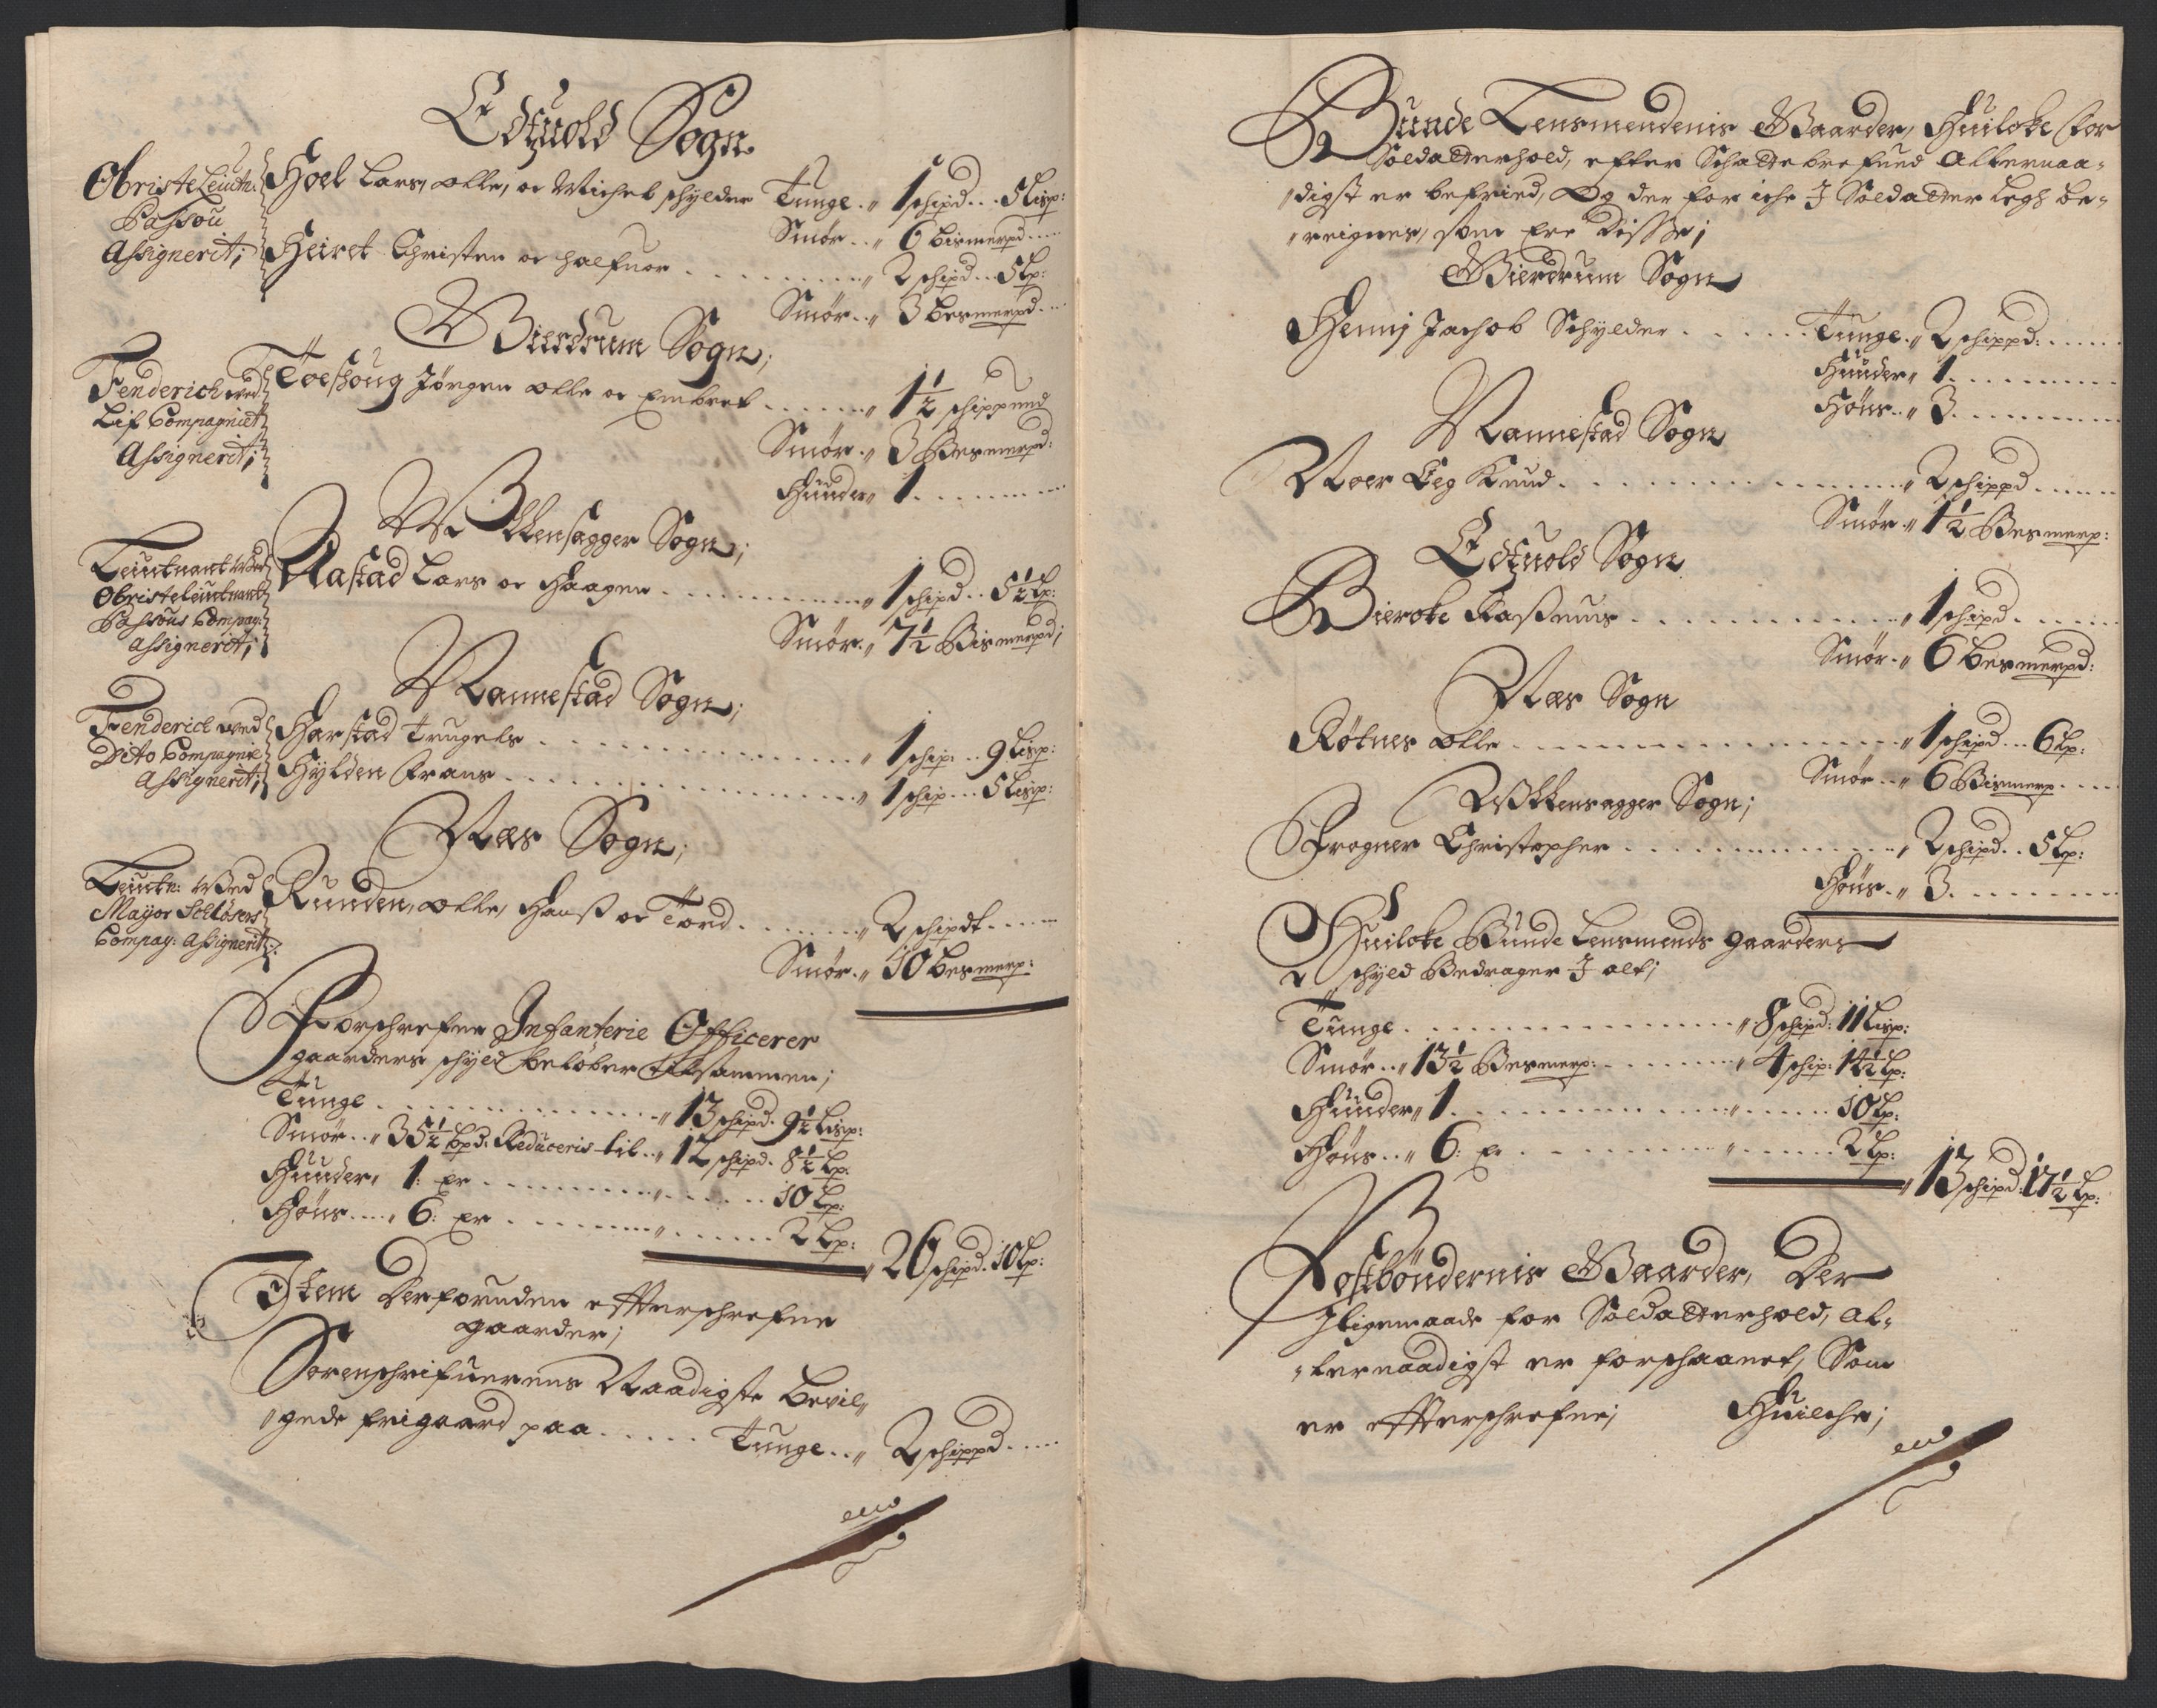 Edtzuold Sogn
Obriste Leutn:
Passou
Assignerit;
Hoel Lars, olle, oc Michel schylder Tunge . 1 schipd . . 5 Lisp:
Smör . . 6 bismerpd . . .
Heiret Christen oc halfuor . . . . 2 schipd . . 5 Lp:
Smör . . 3 besmerpd . .
Gierdrum Sogn;
Fenderich ved
Lif Compagniet
Assignerit;
Toeshoug Jörgen olle oc Embret . . . . 1½ schippund
Smör . 3 Besmerpd:
Huuder 1 . . . . .
Ullensagger Sogn;
Leutnant ved
Obristeleutnant
Passous Compag:
assignerit;
Aastad Lars oc Haagen . . . . 1 schipd . . 5½ Lp:
Smör . 7½ Bismerpd;
Nannestad Sogn;
Fenderich ved
Dito Compagnie
Assignerit;
Harstad Trugels . . . . 1 schip: . . 9 Lisp:
Hylden Frans . . . . 1 schip . . . 5 Lisp:
Næs Sogn;
Leutn: ved
Mayor Schlösers
Compag: Assignerit:
Runden, olle, Hans oc Tord . . . . 2 schipdt . . . .
Smör . 10 besmerp:
Forschrefne Infanterie Officerer
gaarders schyld beløber tilsammen;
Tunge . . . . 13 schipd . 9½ Lisp:
Smör . . 35½ bpd: Reduceris til . . 12 schipd . 8½ Lp:
Huuder, 1: er . . . . 10 Lp:
Höns . . . 6: er . . . . 2 Lp:
26 schipd . 10 Lp:
Item Derforuden effterschrefne
gaarder;
Sorenschrifuerens Naadigste bevil„
„gede frigaard paa . . . . Tunge . . 2 schippd . . .
Bunde Lensmendenis Gaarder, Huilcke for
Soldatterhold, efter Schattebrefued Allernaa„
„digst er befried, Og der for iche I Soldatter Legh be„
„reignes, som ere Disse;
Gierdrum Sogn
Henni Jachob Schylder . . . . Tunge . 2 schippd: . . . .
Huuder 1 . . . .
Höns . . 3 . . . .
Nannestad Sogn
Noer Eeg Knud . . . . 2 schippd . . . .
Smör . 1½ Besmerp:
Edtzuold Sogn
Bierche Rasmus . . . . 1 schipd . . . .
Smör . 6 besmerpd:
Næs Sogn
Rötnes olle . . . . 1 schipd . . . 6 Lp:
Smör . . 6 Bismerp . . .
Ullensagger Sogn;
Frogner Christopher . . . . 2 schipd . . 5 Lp:
Höns . 3 . . . .
Huilche Bunde Lensmends gaarders
schyld Bedrager I alt;
Tunge . . . . 8 schipd: 11 Lisp:
Smör . . 13½ Besmerp: . . . . 4 schip: 14½ Lp:
Huuder 1 . . . . 10 Lp:
Höns . . 6: er . . . . 2 Lp:
13 schipd: 17½ Lp:
Postböndernis Gaarder, Der
Iligemaade for Soldatterhold, al„
„lernaadigst er forschaanet, Som
er effterschrefne; Huilche;